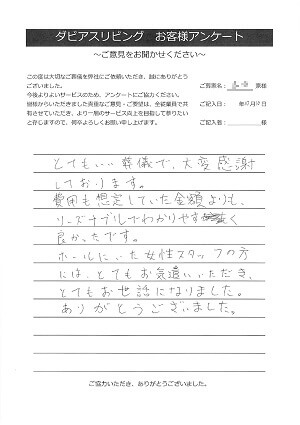 ダビアスリビング お客様アンケート
～ご意見をお聞かせください～
この度は大切なご葬儀を弊社にご依頼いただき、誠にありがとうございました。
今後よりよいサービスのため、アンケートにご協力ください。
皆様からいただきました貴重なご意見・ご要望は、全従業員で共有させていただき、より一層のサービス向上を目指して参りたいと存じますので、何卒よろしくお願い申し上げます。
ご葬家名： 家様
ご記入日： 年12月12日
ご記入者： 様
とてもいい葬儀で、大変感謝
しております。
費用も想定していた金額よりも、
リーズナブルでわかりやすく
良かったです。
ホールにいた女性スタッフの方
には、とてもお気遣いいただき、
とてもお世話になりました。
ありがとうございました。
ご協力いただき、ありがとうございました。